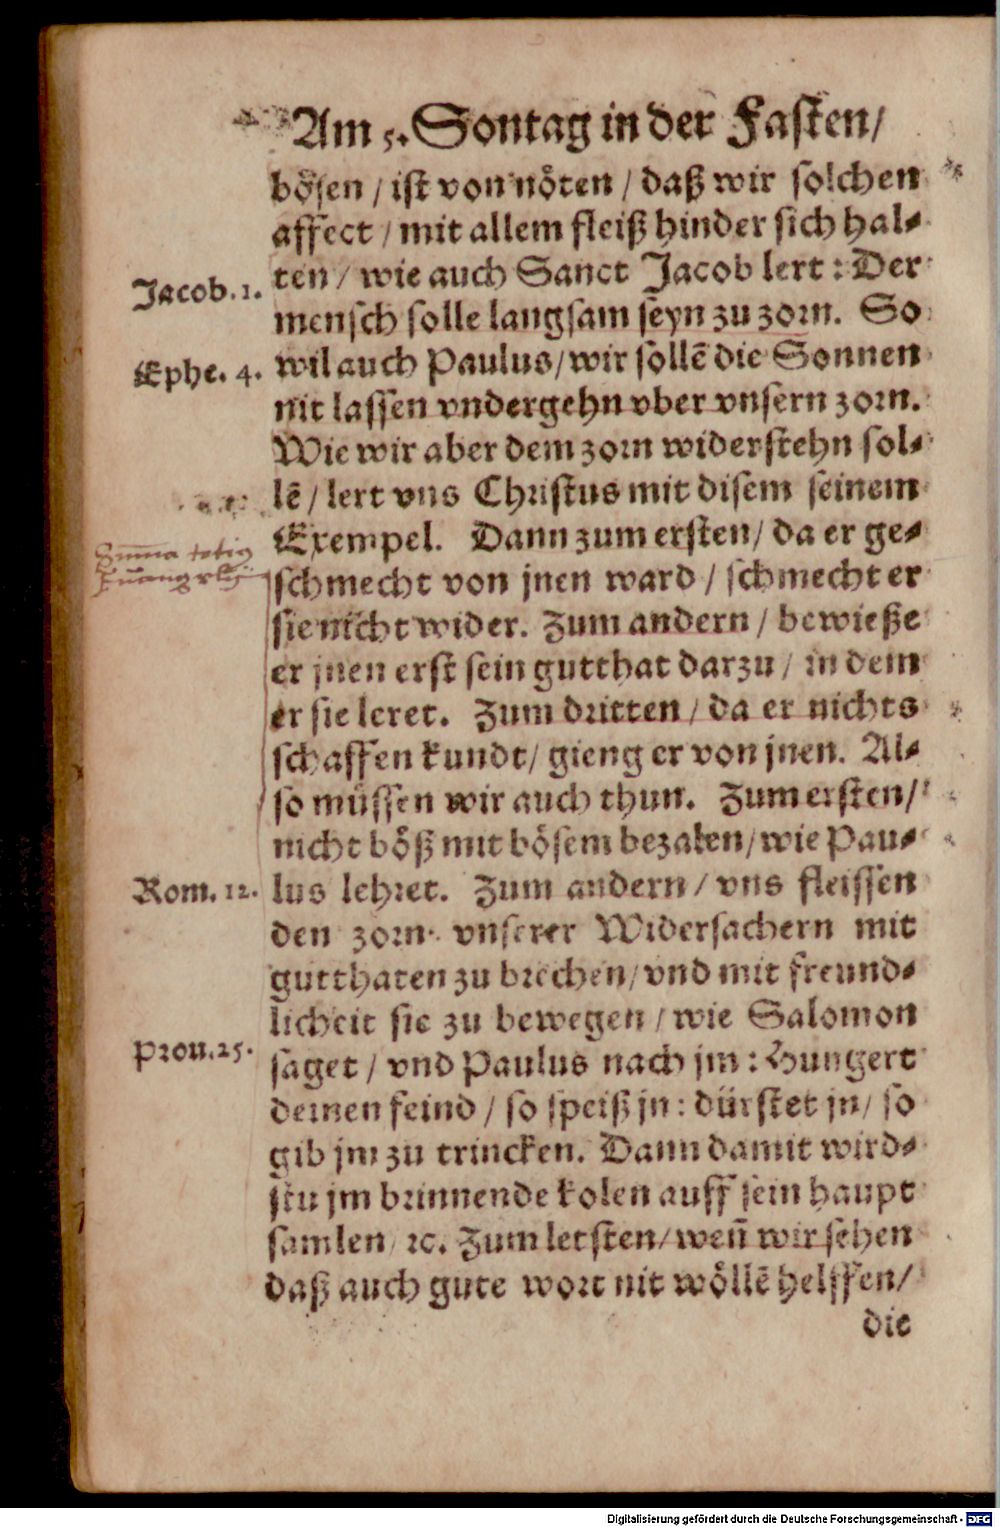 Am 5. Sontag in der Fasten/
bösen / ist von nöten / daß wir solchen
affect / mit allem fleiß hinder sich hal⸗
ten / wie auch Sanct Jacob lert : Der
Jacob. 1.
mensch solle langsam seyn zu zorn. So
wil auch Paulus/ wir sollē die Sonnen
Ephe. 4.
nit lassen vndergehn vber vnsern zorn.
Wie wir aber dem zorn widerstehn sol⸗
lē / lert vns Christus mit disem seinem
Exempel. Dann zum ersten/ da er ge⸗
Sum̄a totius
Euangelij
schmecht von jnen ward / schmecht er
sie nicht wider. Zum andern / bewieße
er jnen erst sein gutthat darzu / in dem
er sie leret. Zum dritten / da er nichts
schaffen kundt/ gieng er von jnen. Al⸗
so müssen wir auch thun. Zum ersten/
nicht böß mit bösem bezalen/ wie Pau⸗
Rom. 12.
lus lehret. Zum andern / vns fleissen
den zorn vnserer Widersachern mit
gutthaten zu brechen/ vnd mit freund⸗
licheit sie zu bewegen / wie Salomon
Prou. 25.
saget / vnd Paulus nach jm : Hungert
deinen feind / so speiß jn : dürstet jn/ so
gib jm zu trincken. Dann damit wird⸗
stu jm brinnende kolen auff sein haupt
samlen/ ꝛc. Zum letsten/ weñ wir sehen
daß auch gute wort nit wöllē helffen/
die
Digitalisierung gefördert durch die Deutsche Forschungsgemeinschaft - DFG